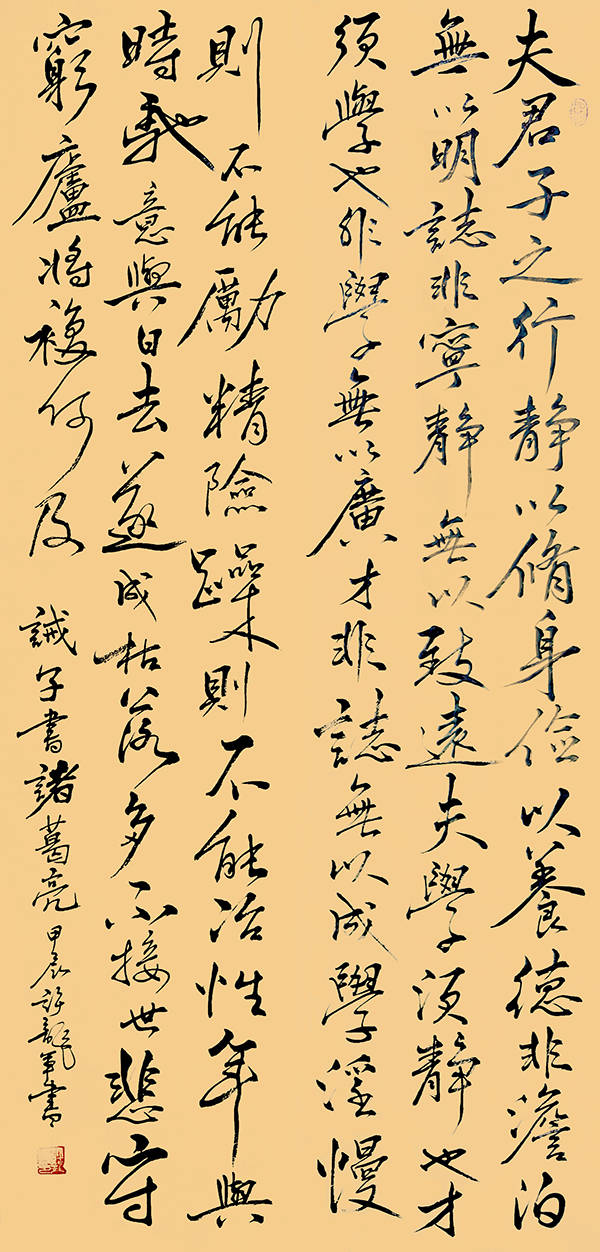 夫君子之行静以脩身儉以養德非澹泊
無以明誌非寧静無以致遠夫學須静也才
須學也非學無以廣才非誌無以成學淫慢
則不能勵精險躁則不能冶性年與
時馳意與日去遂成枯落多不接世悲守
窮廬將複何及
誡子書諸葛亮甲辰許龍軍書